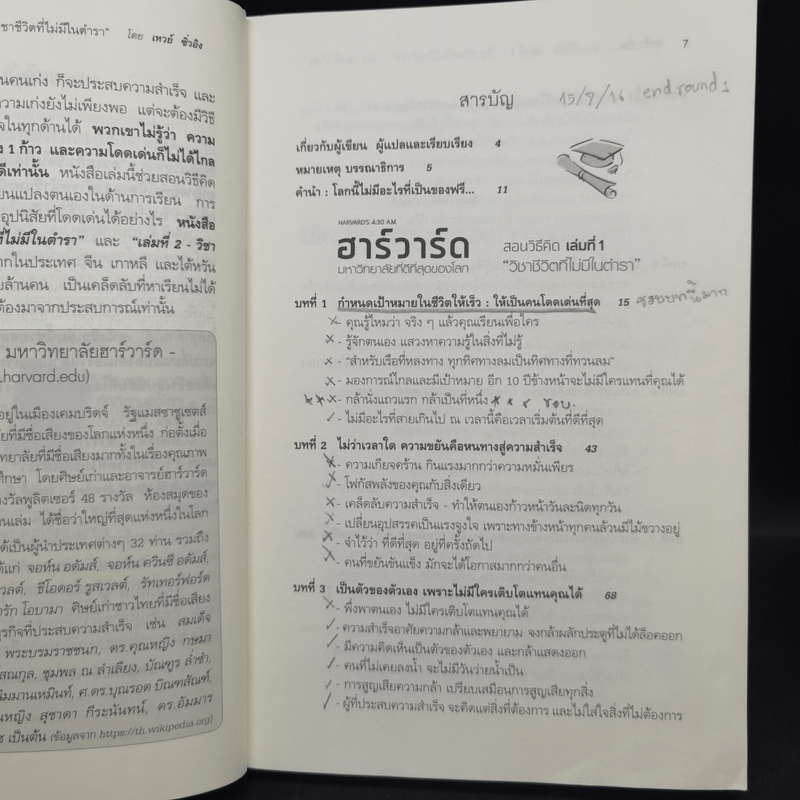 ชาชีวิตที่ไม่มีในตำรา" โดย เหวย์ ซิ่วอิง
นคนเก่ง ก็จะประสบความสำเร็จ และ
วามเก่งยังไม่เพียงพอ แต่จะต้องมีวิธี
จในทุกด้านได้ พวกเขาไม่รู้ว่า ความ
1 ก้าว และความโดดเด่นก็ไม่ได้ไกล
ดีเท่านั้น หนังสือเล่มนี้ช่วยสอนวิธีคิด
ยนแปลงตนเองในด้านการเรียน การ
อุปนิสัยที่โดดเด่นได้อย่างไร หนังสือ
ที่ไม่มีในตำรา" และ "เล่มที่ 2 - วิชา
ากในประเทศ จีน เกาหลี และไต้หวัน
ยล้านคน เป็นเคล็ดลับที่หาเรียนไม่ได้
ต้องมาจากประสบการณ์เท่านั้น
มหาวิทยาลัยฮาร์วาร์ด -
.harvard.edu)
อยู่ในเมืองเคมบริดจ์ รัฐแมสซาชูเซตส์
ยที่มีชื่อเสียงของโลกแห่งหนึ่ง ก่อตั้งเมื่อ
ทยาลัยที่มีชื่อเสียงมากทั้งในเรื่องคุณภาพ
ศึกษา โดยศิษย์เก่าและอาจารย์ฮาร์วาร์ด
งวัลพูลิตเซอร์ 48 รางวัล ห้องสมุดของ
านเล่ม ได้ชื่อว่าใหญ่ที่สุดแห่งหนึ่งในโลก
ด้เป็นผู้นำประเทศต่างๆ 32 ท่าน รวมถึง
ด้แก่ จอห์น อดัมส์, จอห์น ควินซี อดัมส์,
วลต์, ธีโอดอร์ รูสเวลต์, รัทเทอร์ฟอร์ด
รัก โอบามา ศิษย์เก่าชาวไทยที่มีชื่อเสียง
รกิจที่ประสบความสำเร็จ เช่น สมเด็จ
พระบรมราชชนก, ดร.คุณหญิง กษมา
สณกุล, ชุมพล ณ ลำเลียง, บัณฑูร ล่ำซำ,
ิมมานเหมินท์, ศ.ดร.บุณรอด บิณฑสัณฑ์,
นหญิง สุชาดา กีระนันทน์, ดร.อัมมาร
ช เป็นต้น (ข้อมูลจาก https://th.wikipedia.org)
7
สารบัญ 15/9/16 end round 1
เกี่ยวกับผู้เขียน ผู้แปลและเรียบเรียง 4
หมายเหตุ บรรณาธิการ 5
คำนำ : โลกนี้ไม่มีอะไรที่เป็นของฟรี... 11
HARVARD'S 4:30 A.M.
ฮาร์วาร์ด สอนวิธีคิด เล่มที่ 1
มหาวิทยาลัยที่ดีที่สุดของโลก "วิชาชีวิตที่ไม่มีในตำรา"
บทที่ 1 กำหนดเป้าหมายในชีวิตให้เร็ว : ให้เป็นคนโดดเด่นที่สุด 15 ชอบบทนี้มาก
- คุณรู้ไหมว่า จริง ๆ แล้วคุณเรียนเพื่อใคร
- รู้จักตนเอง แสวงหาความรู้ในสิ่งที่ไม่รู้
- "สำหรับเรือที่หลงทาง ทุกทิศทางลมเป็นทิศทางที่ทวนลม"
- มองการณ์ไกลและมีเป้าหมาย อีก 10 ปีข้างหน้าจะไม่มีใครแทนที่คุณได้
- กล้านั่งแถวแรก กล้าเป็นที่หนึ่ง ชอบ
- ไม่มีอะไรที่สายเกินไป ณ เวลานี้คือเวลาเริ่มต้นที่ดีที่สุด
บทที่ 2 ไม่ว่าเวลาใด ความขยันคือหนทางสู่ความสำเร็จ 43
- ความเกียจคร้าน กินแรงมากกว่าความหมั่นเพียร
- โฟกัสพลังของคุณกับสิ่งเดียว
- เคล็ดลับความสำเร็จ - ทำให้ตนเองก้าวหน้าวันละนิดทุกวัน
- เปลี่ยนอุปสรรคเป็นแรงจูงใจ เพราะทางข้างหน้าทุกคนล้วนมีไม้ขวางอยู่
- จำไว้ว่า ที่ดีที่สุด อยู่ที่ครั้งถัดไป
- คนที่ขยันขันแข็ง มักจะได้โอกาสมากกว่าคนอื่น
บทที่ 3 เป็นตัวของตัวเอง เพราะไม่มีใครเติบโตแทนคุณได้ 68
- พึ่งพาตนเอง ไม่มีใครเติบโตแทนคุณได้
- ความสำเร็จอาศัยความกล้าและพยายาม จงกล้าผลักประตูที่ไม่ได้ล็อคออก
- มีความคิดเห็นเป็นตัวของตัวเอง และกล้าแสดงออก
- คนที่ไม่เคยลงน้ำ จะไม่มีวันว่ายน้ำเป็น
- การสูญเสียความกล้า เปรียบเสมือนการสูญเสียทุกสิ่ง
- ผู้ที่ประสบความสำเร็จ จะคิดแต่สิ่งที่ต้องการ และไม่ใส่ใจสิ่งที่ไม่ต้องการ